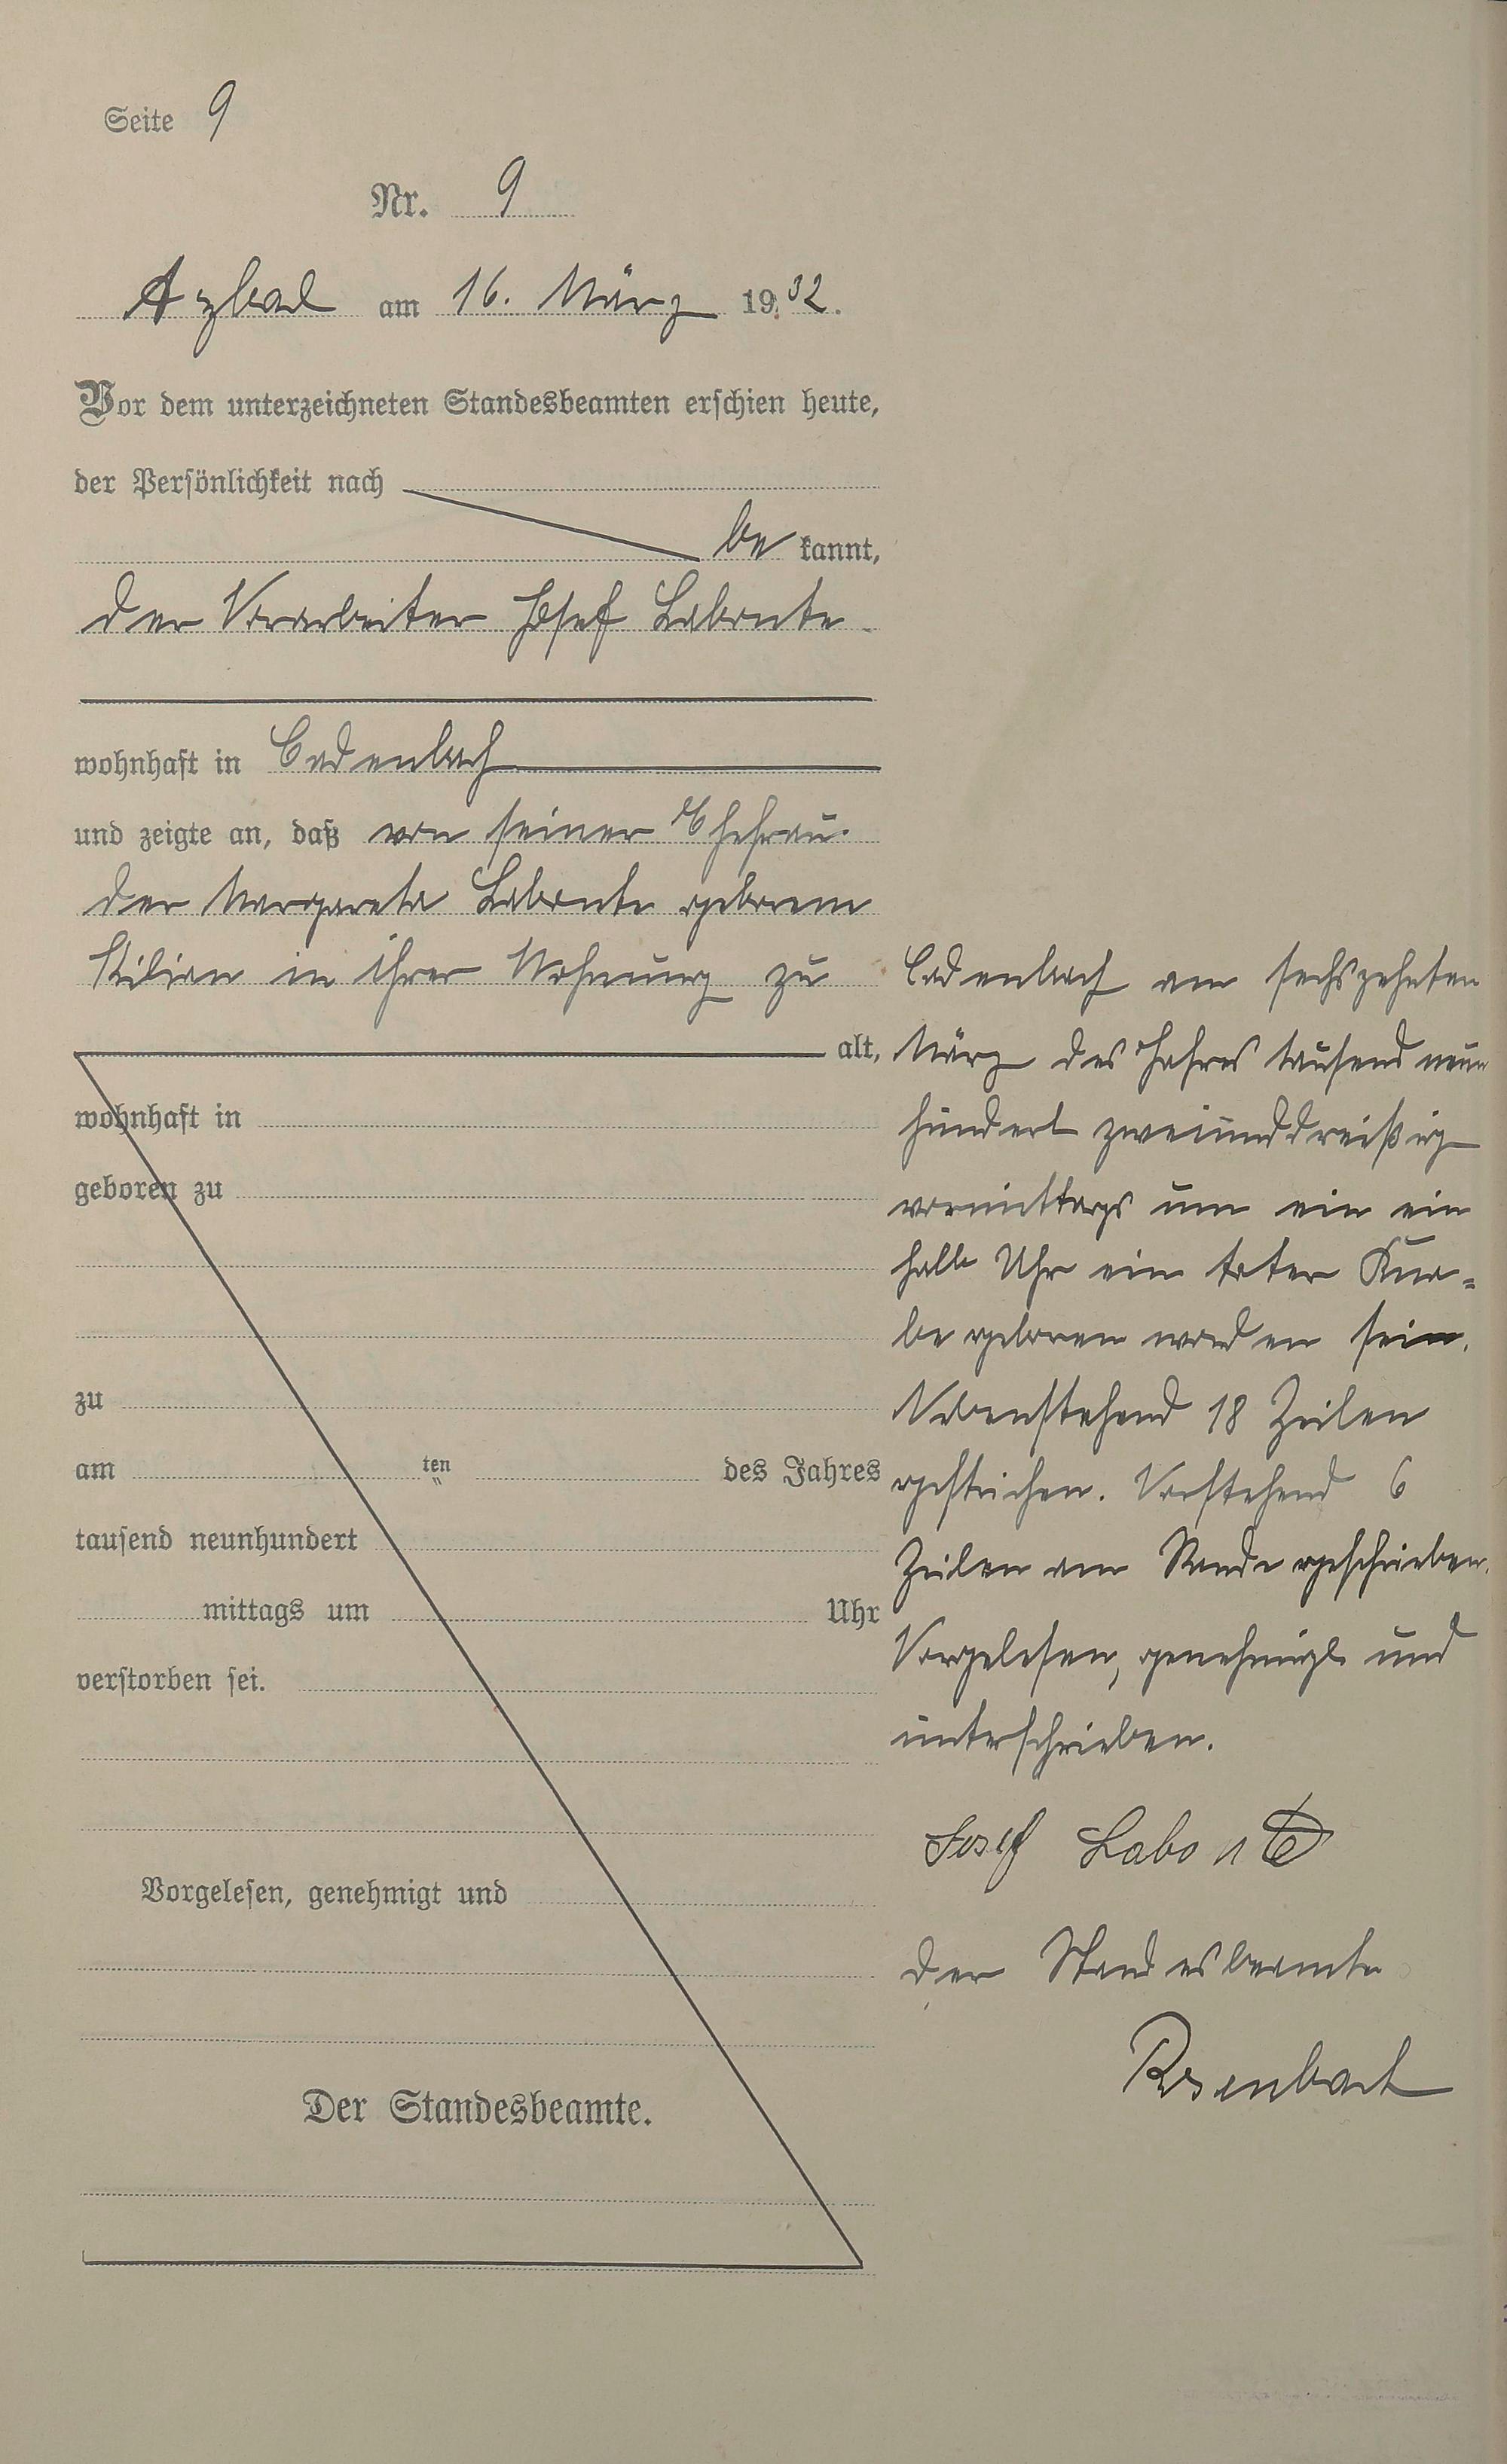 Seite 9
Nr. 9
Arzbach am 16. März 1932.
Vor dem unterzeichneten Standesbeamten erschien heute,
der Persönlichkeit nach
be kannt,
der Vorarbeiter Josef Labonte
wohnhaft in Cadenbach
und zeigte an, daß von seiner Ehefrau
der Margareta Labonte geborene
Kilian in ihrer Wohnung zu
alt,
wohnhaft in
geboren zu
zu
am ten des Jahres
tausend neunhundert
mittags um Uhr
verstorben sei.
Vorgelesen, genehmigt und
Der Standesbeamte.
Cadenbach am sechszehnten
März des Jahres tausend neun
hundert zweiunddreißig
vormittags um ein ein
halb Uhr ein toter Kna-
be geboren worden sei.
Nebenstehend 18 Zeilen
gestrichen. Vorstehend 6
Zeilen am Rande geschrieben.
Vorgelesen, genehmigt und
unterschrieben.
Josef Labonte
der Standesbeamte